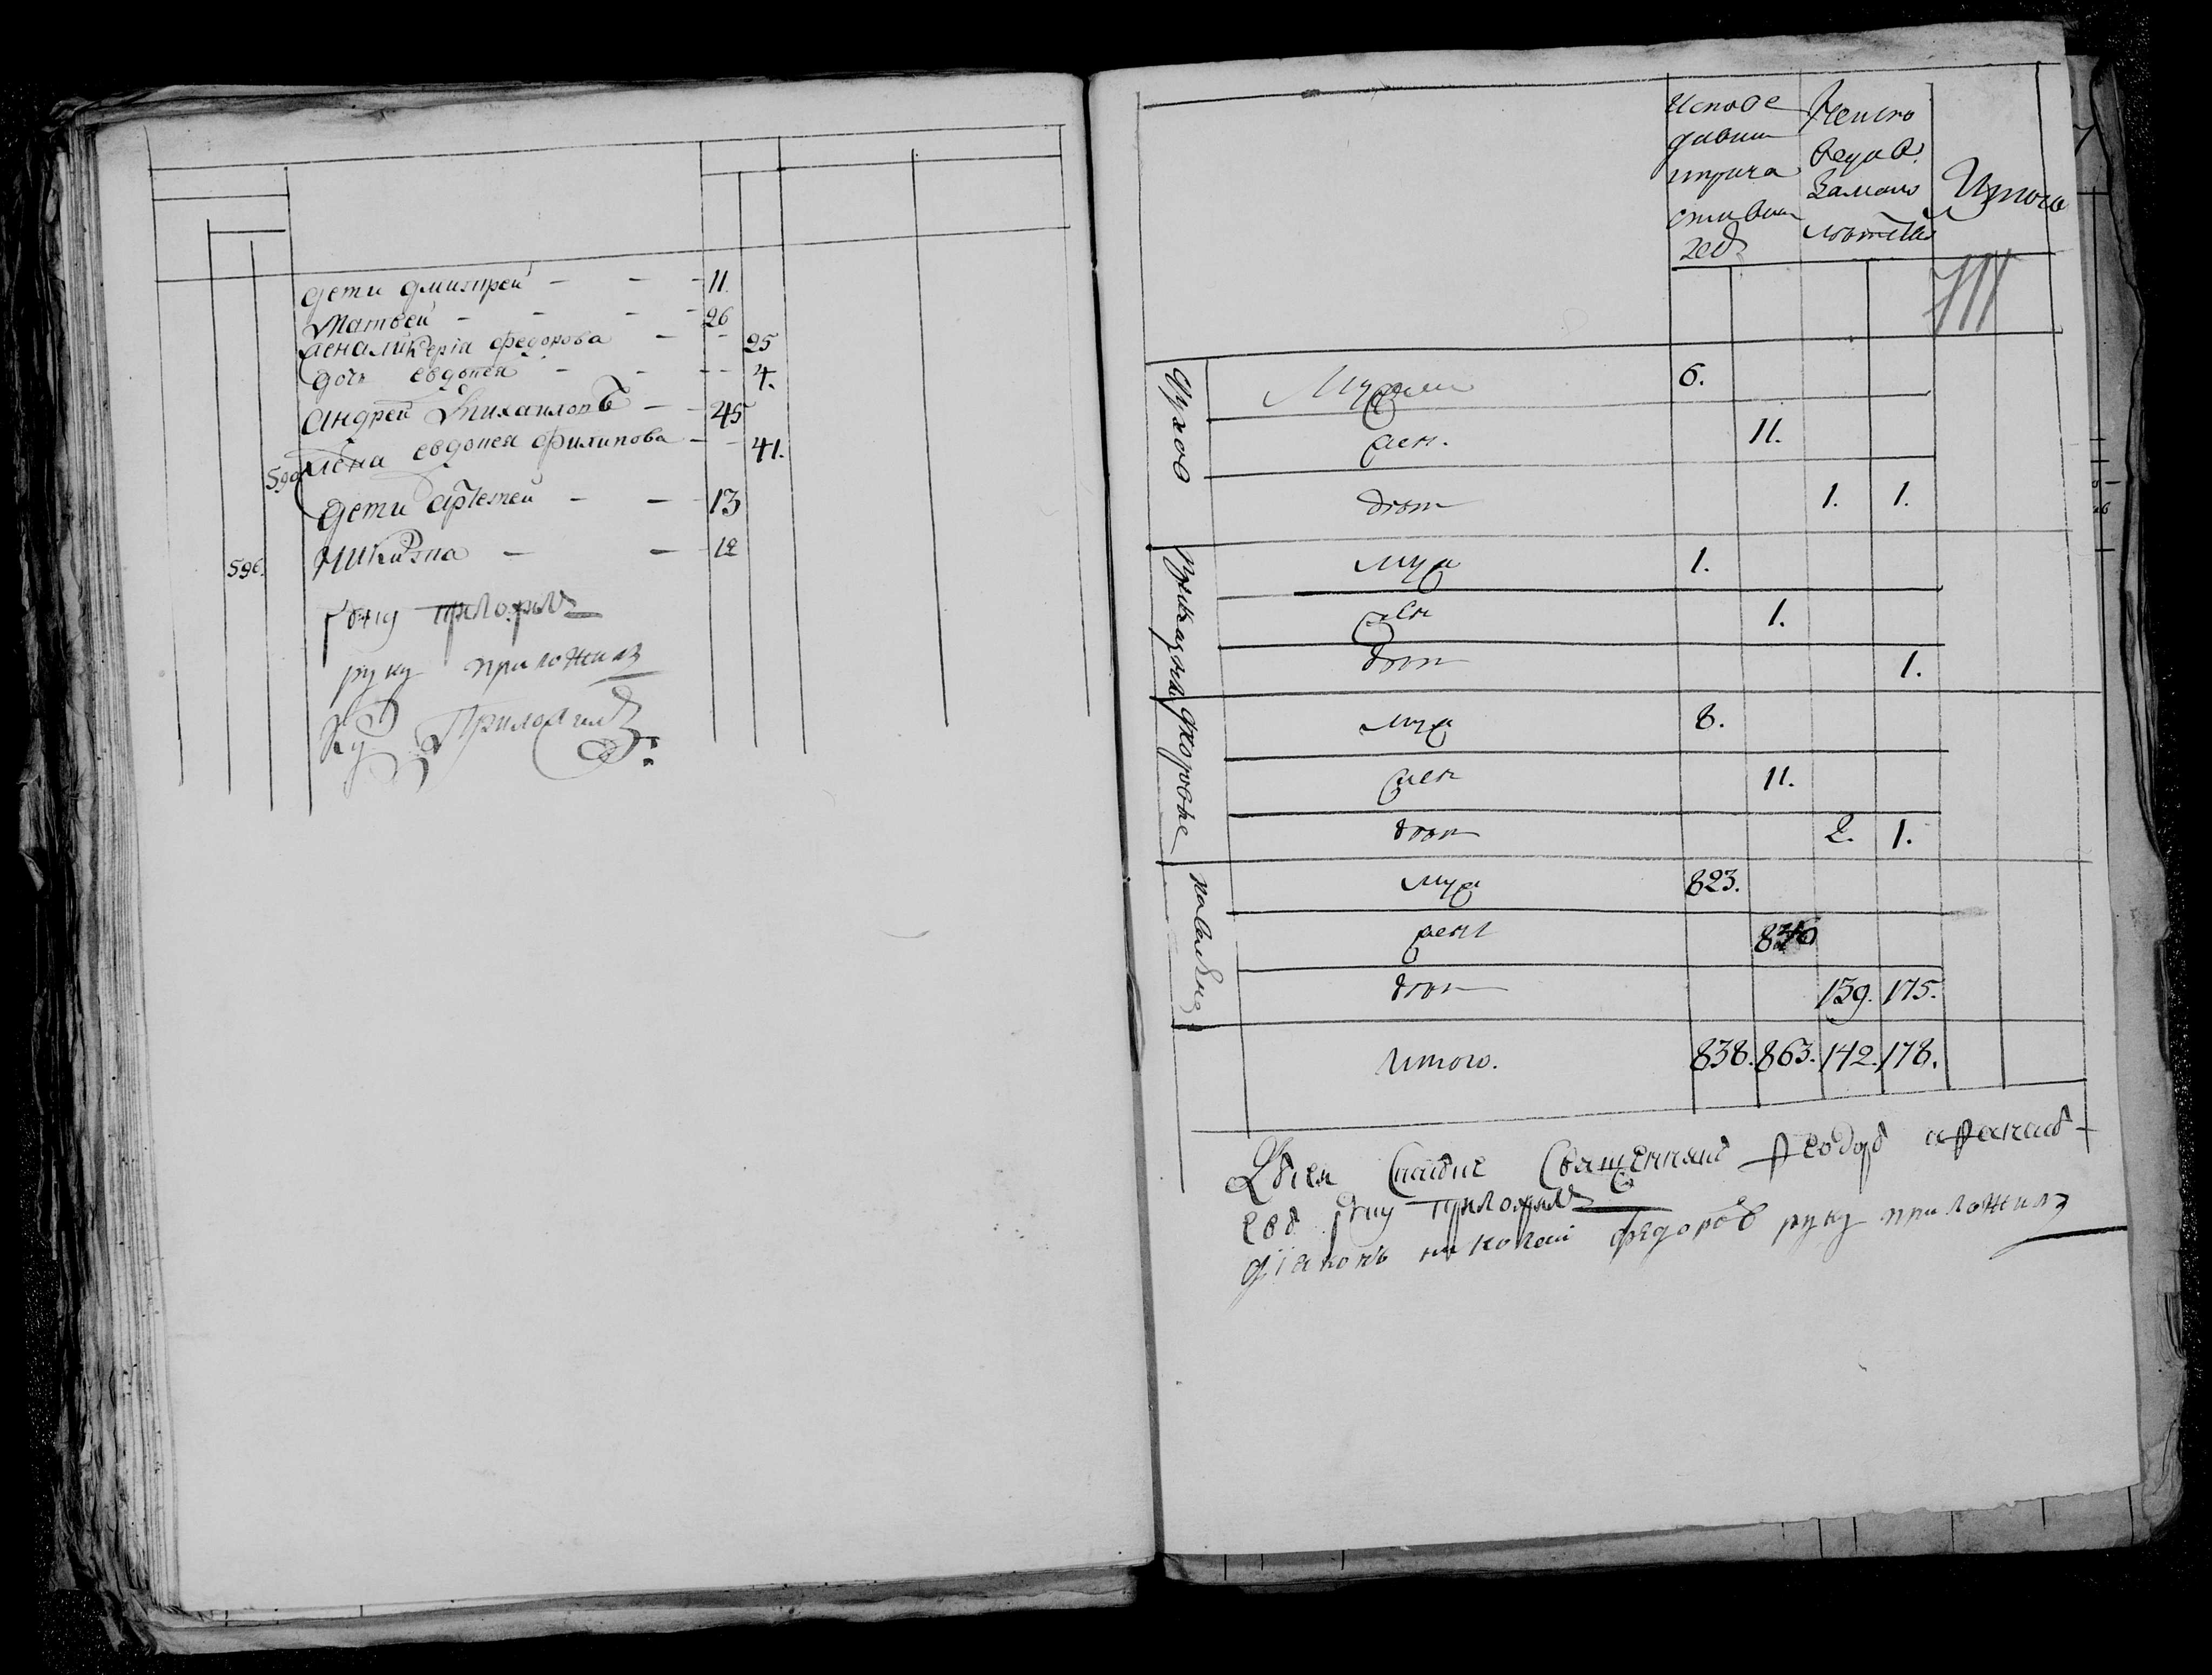 дети дмитрей - - - 11.
Матвей - - - - 26
жена ликерiа федорова - - 25
дочь евдокея - - - - 4.
андрей михаиловъ - - 45
жена евдокея филипова - - 41.
590
дети артемей - - - 13
596. Никита - - - 12
руку приложилъ
руку приложилъ
руку Приложилъ
Испове
давши
ихъ
Неиспо
ведав.
замало
летств
Итого
духов
Мужеи 6.
жен. 11.
дѣт 1. 1.
муж 1.
жен 1.
дѣт 1.
дворовые
муж 8.
жен 11.
дѣт 2. 1.
муж 823.
жен
дѣт 139. 175.
Итого. 838. 863. 142. 178.
священникъ Ѳеодоръ аѳанась-
евъ руку приложилъ
дiаконъ николаи федоровъ руку приложилъ